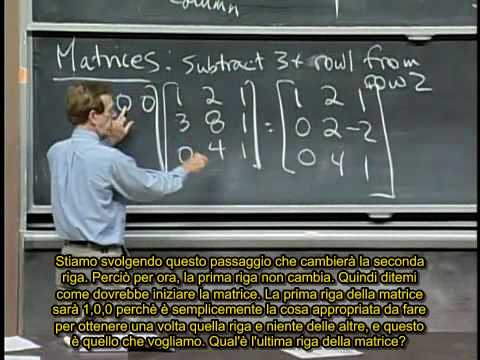 column
Matrices: subtract 3x row1 from
row2
0 0 [1 2 1] [1 2 1]
[3 8 1] = [0 2 -2]
[0 4 1] [0 4 1]
Stiamo svolgendo questo passaggio che cambierà la seconda
riga. Perciò per ora, la prima riga non cambia. Quindi ditemi
come dovrebbe iniziare la matrice. La prima riga della matrice
sarà 1,0,0 perchè è semplicemente la cosa appropriata da fare
per ottenere una volta quella riga e niente delle altre, e questo
è quello che vogliamo. Qual'è l'ultima riga della matrice?